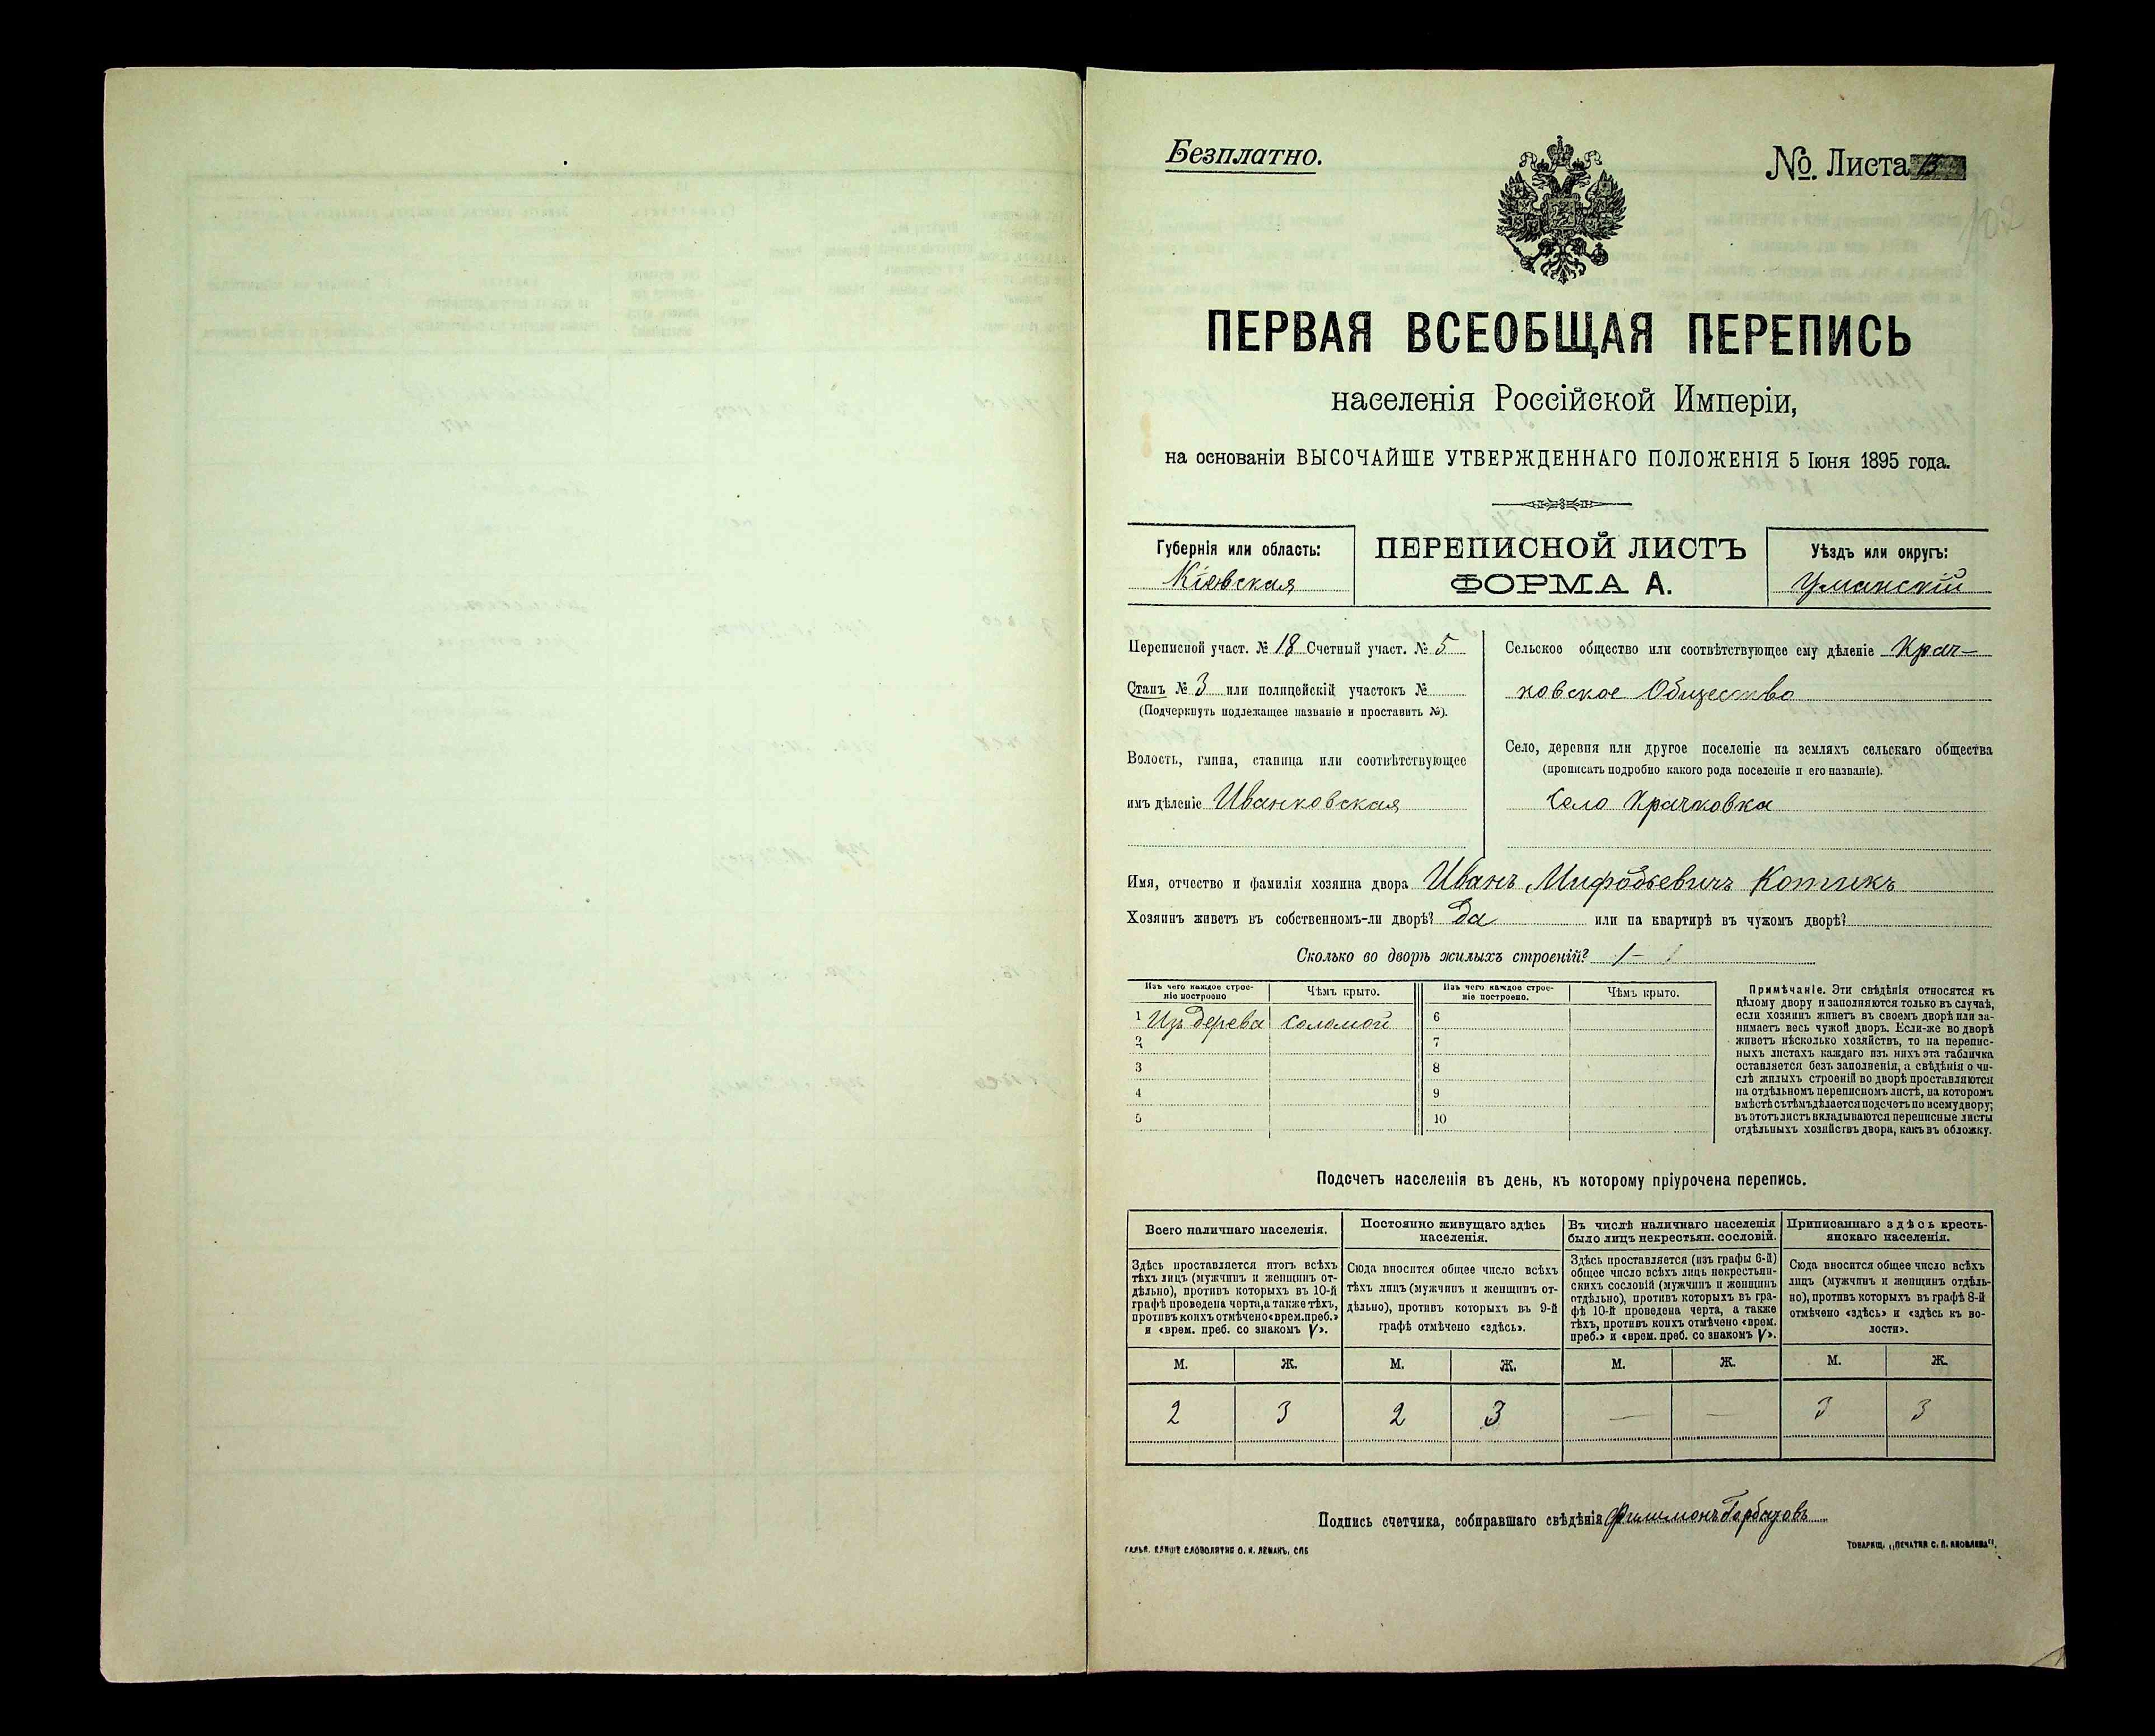 Безплатно.
№. Листа
102
ПЕРВАЯ ВСЕОБЩАЯ ПЕРЕПИСЬ
населенія Россійской Имперіи,
на основаніи ВЫСОЧАЙШЕ УТВЕРЖДЕННАГО ПОЛОЖЕНІЯ 5 Іюня 1895 года.
Губернія или область:
Кіевская
ПЕРЕПИСНОЙ ЛИСТЪ
ФОРМА А.
Уѣздъ или округъ:
Уманскій
Переписной участ. № 18 Счетный участ. № 5
Станъ № 3 или полицейскій участокъ №
(Подчеркнуть подлежащее названіе и проставить №).
Волость, гмина, станица или соотвѣтствующее
имъ дѣленіе Иванковская
Сельское общество или соотвѣтствующее ему дѣленіе Крач-
ковское Общество
Село, деревня или другое поселеніе на земляхъ сельскаго общества
(прописать подробно какого рода поселеніе и его названіе).
Село Крачковка
Имя, отчество и фамилія хозяина двора Иванъ Котикъ
Хозяинъ живетъ въ собственномъ-ли дворѣ? Да или на квартирѣ въ чужомъ дворѣ?
Сколько во дворѣ жилыхъ строеній? 1
Изъ чего каждое строе-
ніе построено
Чѣмъ крыто.
Изъ чего каждое строе-
ніе построено.
Чѣмъ крыто.
1 Изъ дерева соломой 6
2 7
3 8
4 9
5 10
Примѣчаніе. Эти свѣдѣнія относятся къ
цѣлому двору и заполняются только въ случаѣ,
если хозяинъ живетъ въ своемъ дворѣ или за-
нимаетъ весь чужой дворъ. Если-же во дворѣ
живетъ нѣсколько хозяйствъ, то на перепис-
ныхъ листахъ каждаго изъ нихъ эта табличка
оставляется безъ заполненія, а свѣдѣнія о чи-
слѣ жилыхъ строеній во дворѣ проставляются
на отдѣльномъ переписномъ листѣ, на которомъ
вмѣстѣ съ тѣмъ дѣлается подсчетъ по всему двору;
въ этотъ листъ вкладываются переписные листы
отдѣльныхъ хозяйствъ двора, какъ въ обложку.
Подсчетъ населенія въ день, къ которому пріурочена перепись.
Всего наличнаго населенія.
Здѣсь проставляется итогъ всѣхъ
тѣхъ лицъ (мужчинъ и женщинъ от-
дѣльно), противъ которыхъ въ 10-й
графѣ проведена черта, а также тѣхъ,
противъ коихъ отмѣчено «врем. преб.»
и «врем. преб. со знакомъ V».
Постоянно живущаго здѣсь
населенія.
Сюда вносится общее число всѣхъ
тѣхъ лицъ (мужчинъ и женщинъ от-
дѣльно), противъ которыхъ въ 9-й
графѣ отмѣчено «здѣсь».
Въ числѣ наличнаго населенія
было лицъ некрестьян. сословій.
Здѣсь проставляется (изъ графы 6-й)
общее число всѣхъ лицъ некрестьян-
скихъ сословій (мужчинъ и женщинъ
отдѣльно), противъ которыхъ въ гра-
фѣ 10-й проведена черта, а также
тѣхъ, противъ коихъ отмѣчено «врем.
преб.» и «врем. преб. со знакомъ V».
Приписаннаго здѣсь кресть-
янскаго населенія.
Сюда вносится общее число всѣхъ
лицъ (мужчинъ и женщинъ отдѣль-
но), противъ которыхъ въ графѣ 8-й
отмѣчено «здѣсь» и «здѣсь къ во-
лости».
М. Ж. М. Ж. М. Ж. М. Ж.
2 3 2 3 — — 3 3
Подпись счетчика, собиравшаго свѣдѣнія Филимонъ
ГАЛЬВ. КЛИШЕ СЛОВОЛИТНИ О. И. ЛЕМАНЪ, СПБ
ТОВАРИЩ. „ПЕЧАТНЯ С. П. ЯКОВЛЕВА".